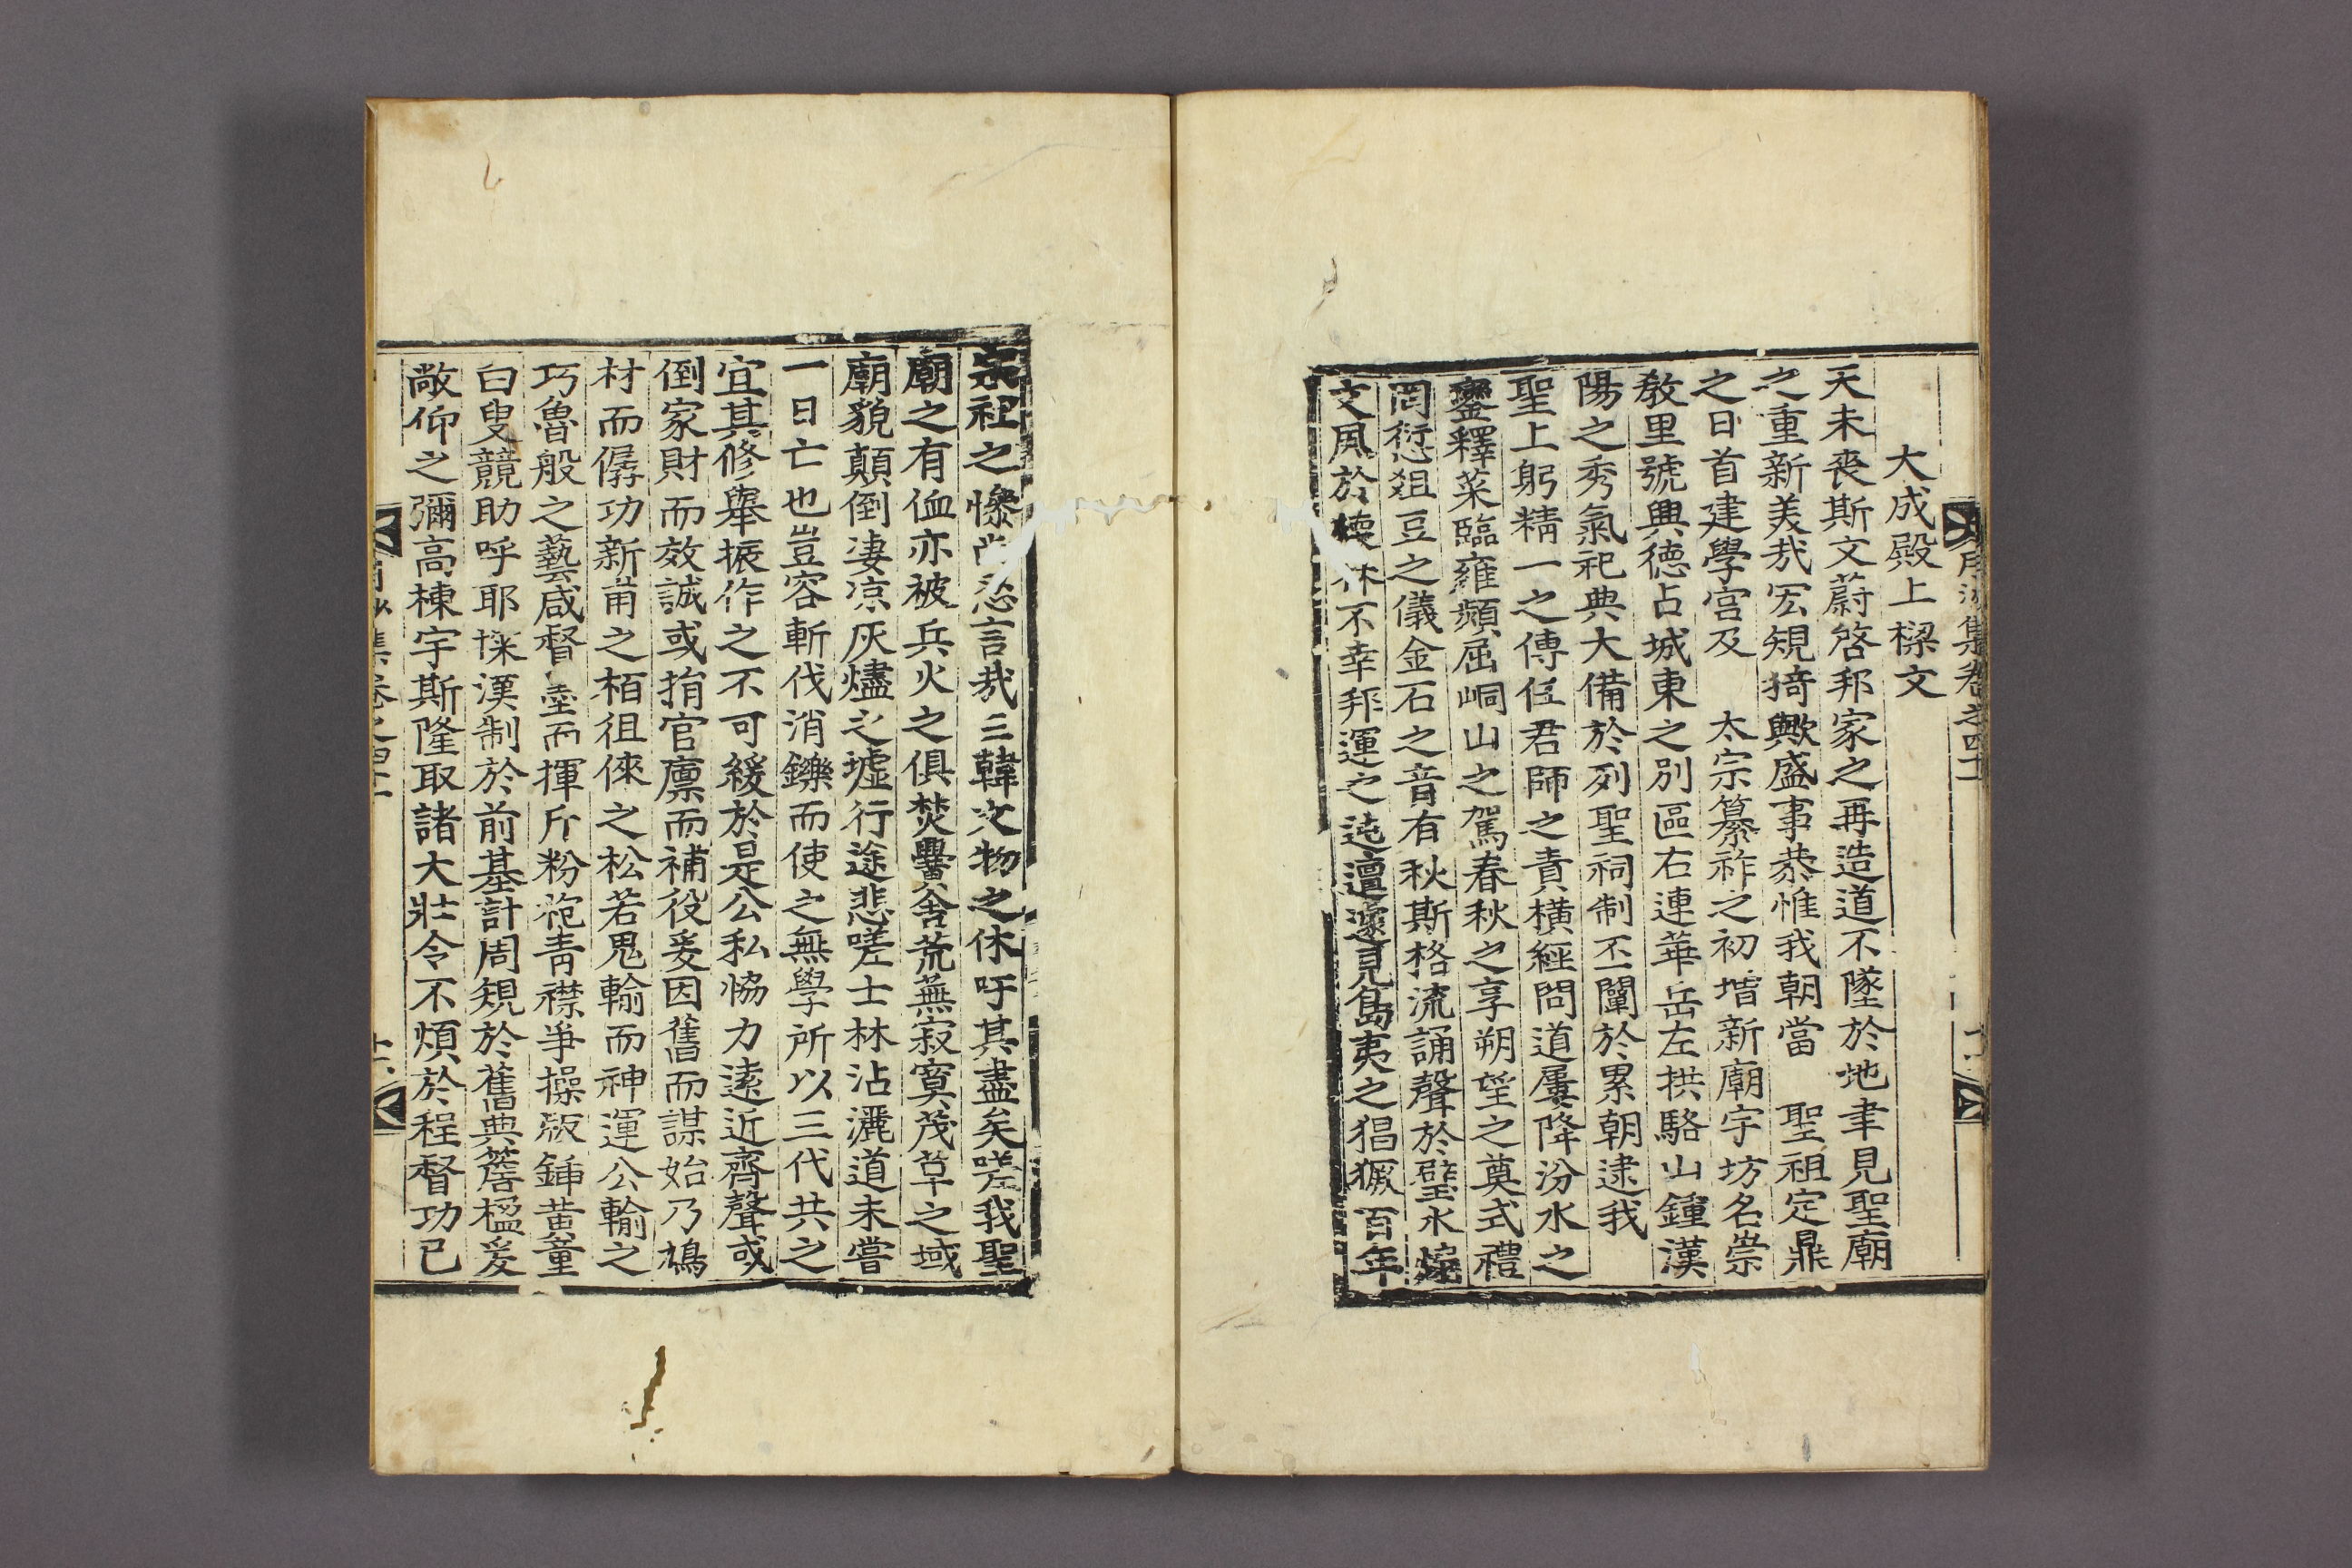 大成殿上樑文
天未喪斯文蔚啓邦家之再造道不墜於地聿見聖廟
之重新美哉宏規猗歟盛事恭惟我朝當 聖祖定鼎
之日首建學宮及 太宗纂祚之初增新廟宇坊名崇
敎里號興德占城東之別區右連華岳左拱駱山鍾漢
陽之秀氣祀典大備於列聖祠制丕闡於累朝逮我
聖上躬精一之傳任君師之責橫經問道屢降汾水之
鑾釋菜臨雍頻屈峒山之駕春秋之享朔望之奠式禮
罔愆俎豆之儀金石之音有秋斯格流誦聲於璧水
文風於棫林不幸邦運之迍邅遽見島夷之猖獗百年
宗社之慘尚忍言哉三韓文物之休吁其盡矣嗟我聖
廟之有侐亦被兵火之俱焚黌舍荒蕪寂寞茂草之域
廟貌顚倒凄凉灰燼之墟行途悲嗟士林沾灑道未嘗
一日亡也豈容斬伐消鑠而使之無學所以三代共之
宜其修擧振作之不可緩於是公私恊力遠近齊聲或
倒家財而效誠或捐官廪而補役爰因舊而謀始乃鳩
材而僝功新甫之栢徂徠之松若鬼輸而神運公輸之
巧魯般之藝咸督 而揮斤粉袍靑襟爭操版鍤黃童
白叟競助呼耶採漢制於前基計周規於舊典簷楹爰
敞仰之彌高棟宇斯隆取諸大壯令不煩於程督功已
集卷之四十一